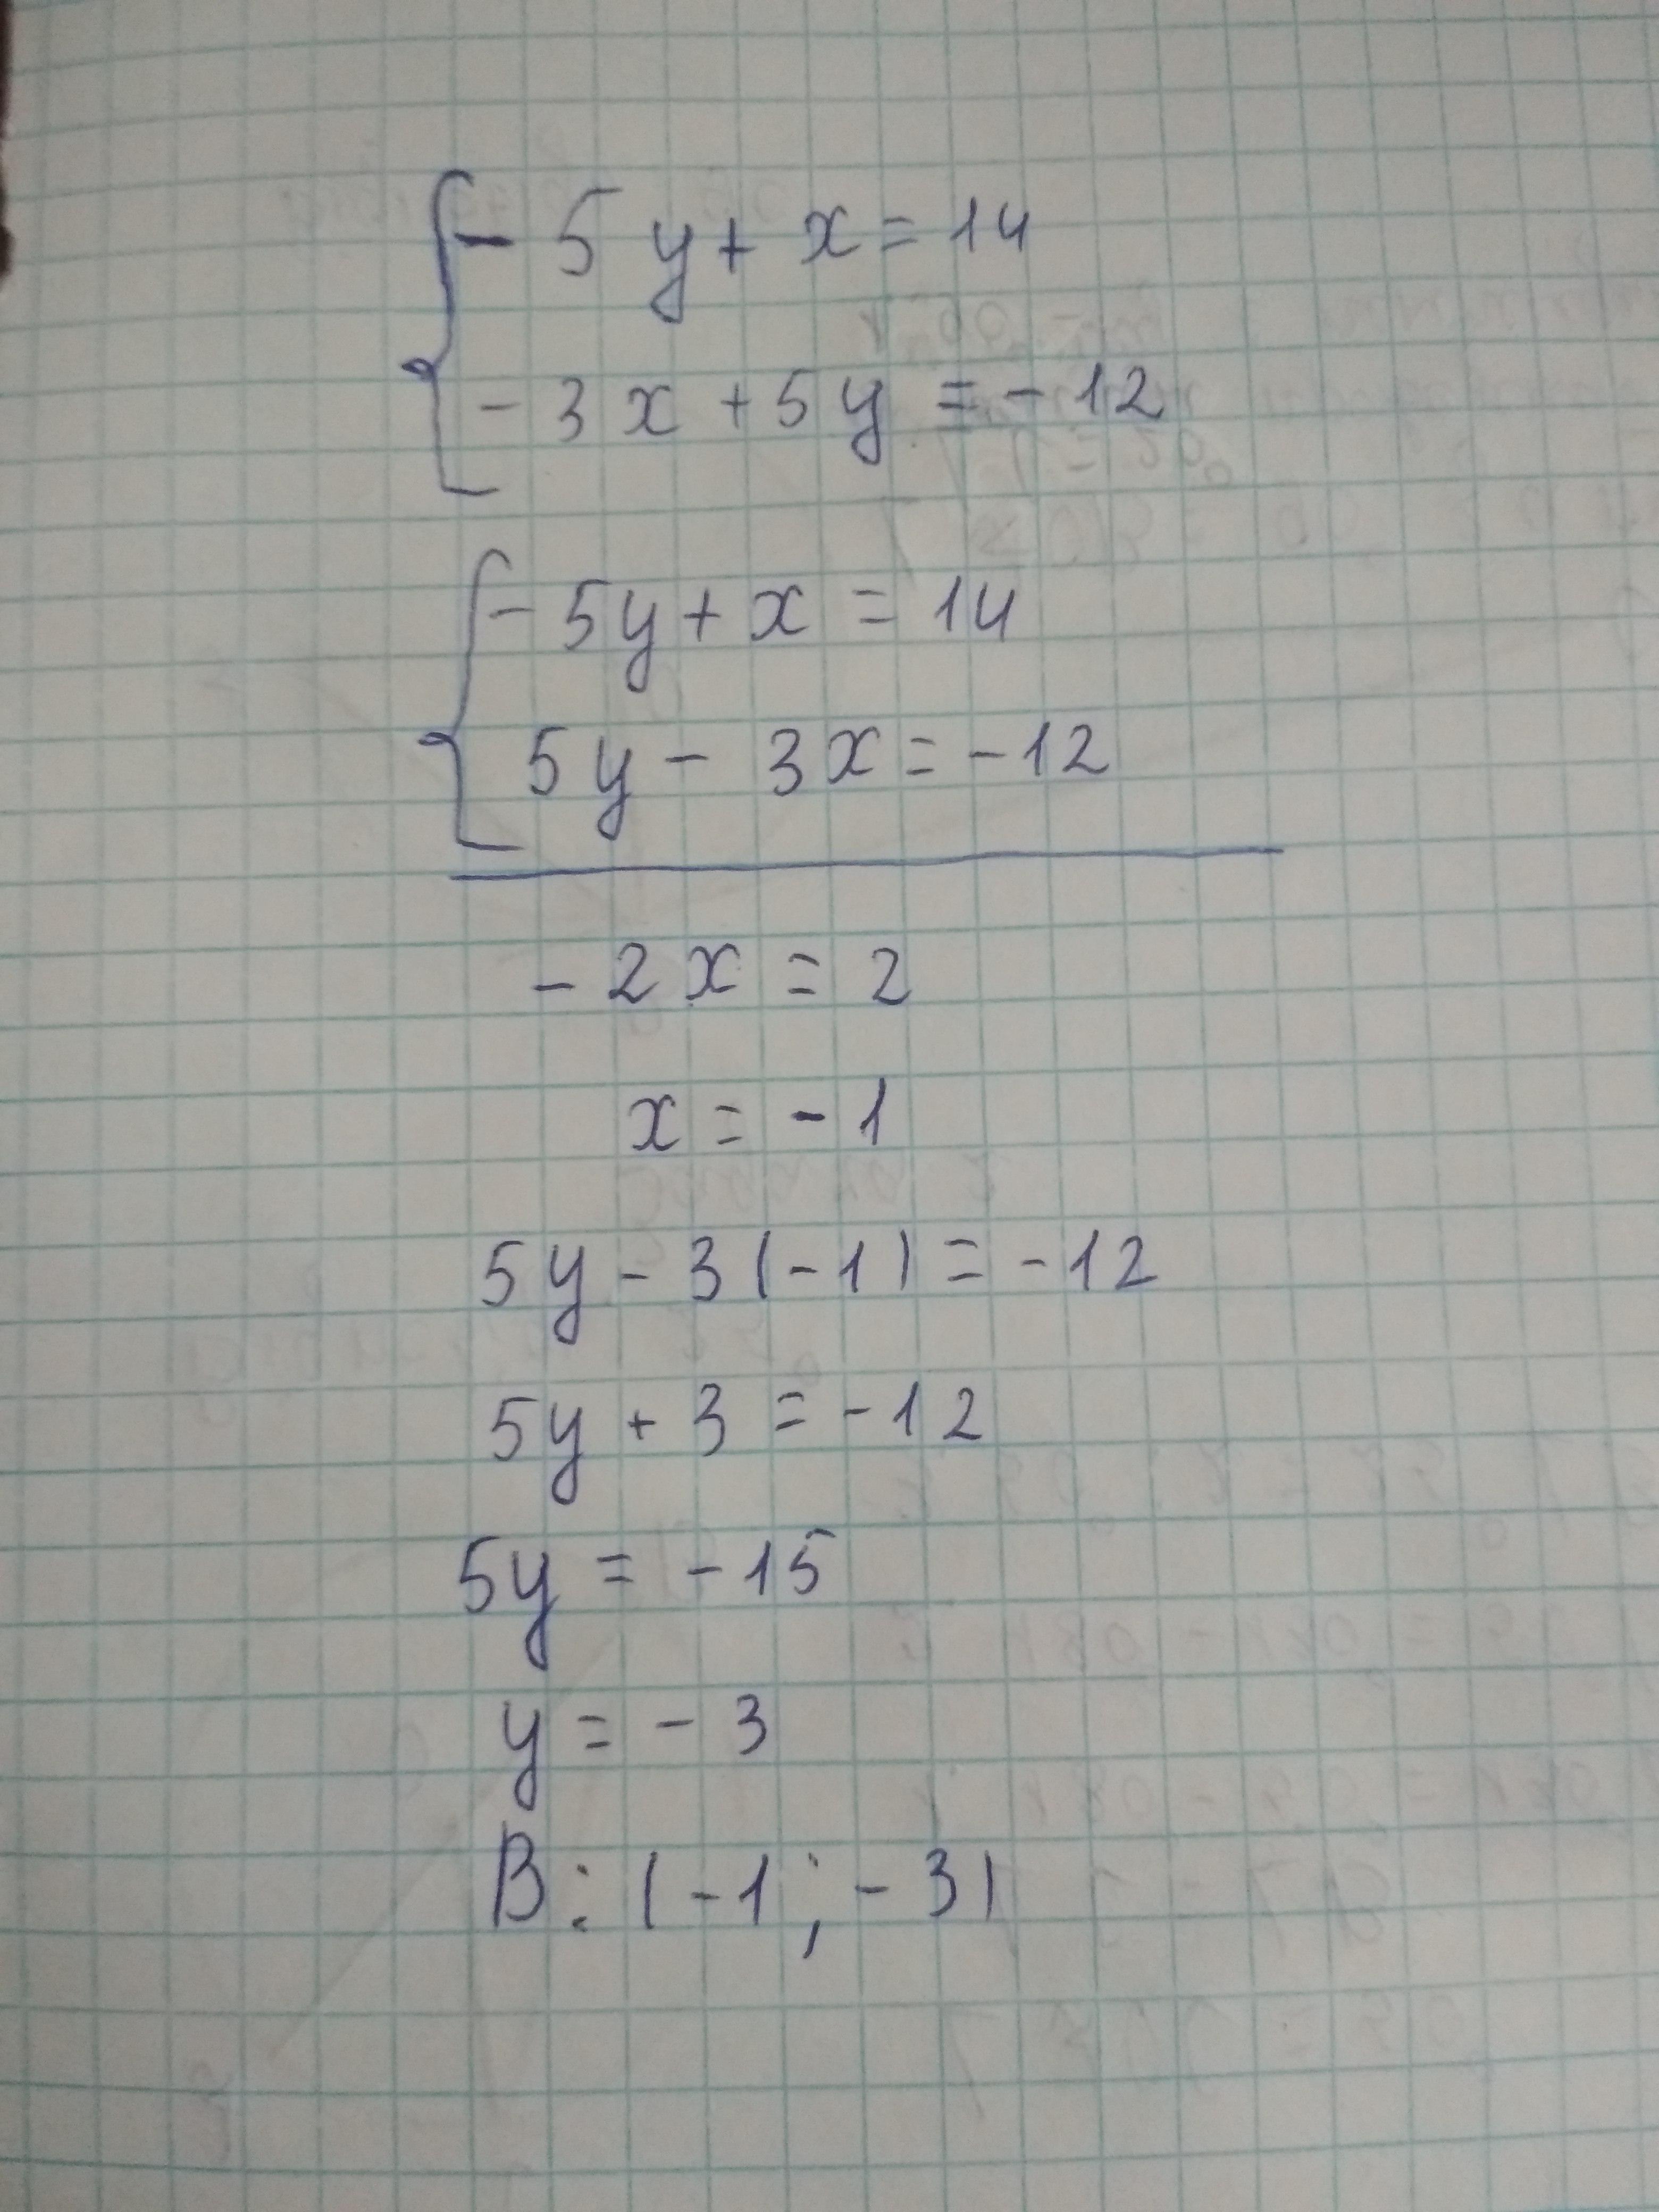 { - 5y + x = 14
- 3x + 5y = - 12
{ - 5y + x = 14
5y - 3x = - 12
- 2x = 2
x = - 1
5y - 3(-1) = - 12
5y + 3 = - 12
5y = - 15
y = - 3
В: (-1; -3)